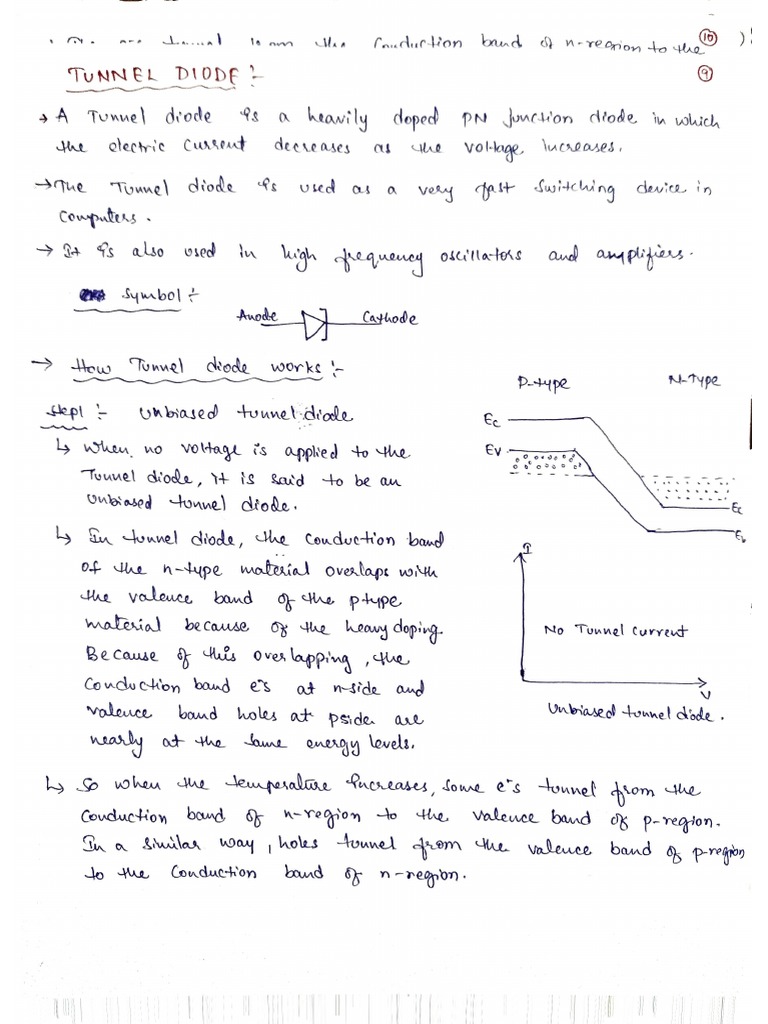 the Conduction band of n-region to the
10
TUNNEL DIODE :-
9
→ A Tunnel diode is a heavily doped PN junction diode in which
the electric current decreases as the voltage increases.
→ The Tunnel diode is used as a very fast switching device in
Computers.
→ It is also used in high frequency oscillators and amplifiers.
Symbol :-
Anode Cathode
→ How Tunnel diode works :-
P-type N-Type
Step1 :- Unbiased tunnel diode
↳ When no voltage is applied to the
Tunnel diode, it is said to be an
Unbiased tunnel diode.
Ec
Ev
Ec
Ev
↳ In tunnel diode, the conduction band
of the n-type material overlaps with
the valence band of the ptype
material because of the heavy doping.
Because of this overlapping, the
Conduction band e's at n-side and
valence band holes at pside are
nearly at the same energy levels.
I
No Tunnel current
V
Unbiased tunnel diode.
↳ So when the temperature increases, some e's tunnel from the
Conduction band of n-region to the valence band of p-region.
In a similar way, holes tunnel from the valence band of p-region
to the Conduction band of n-region.